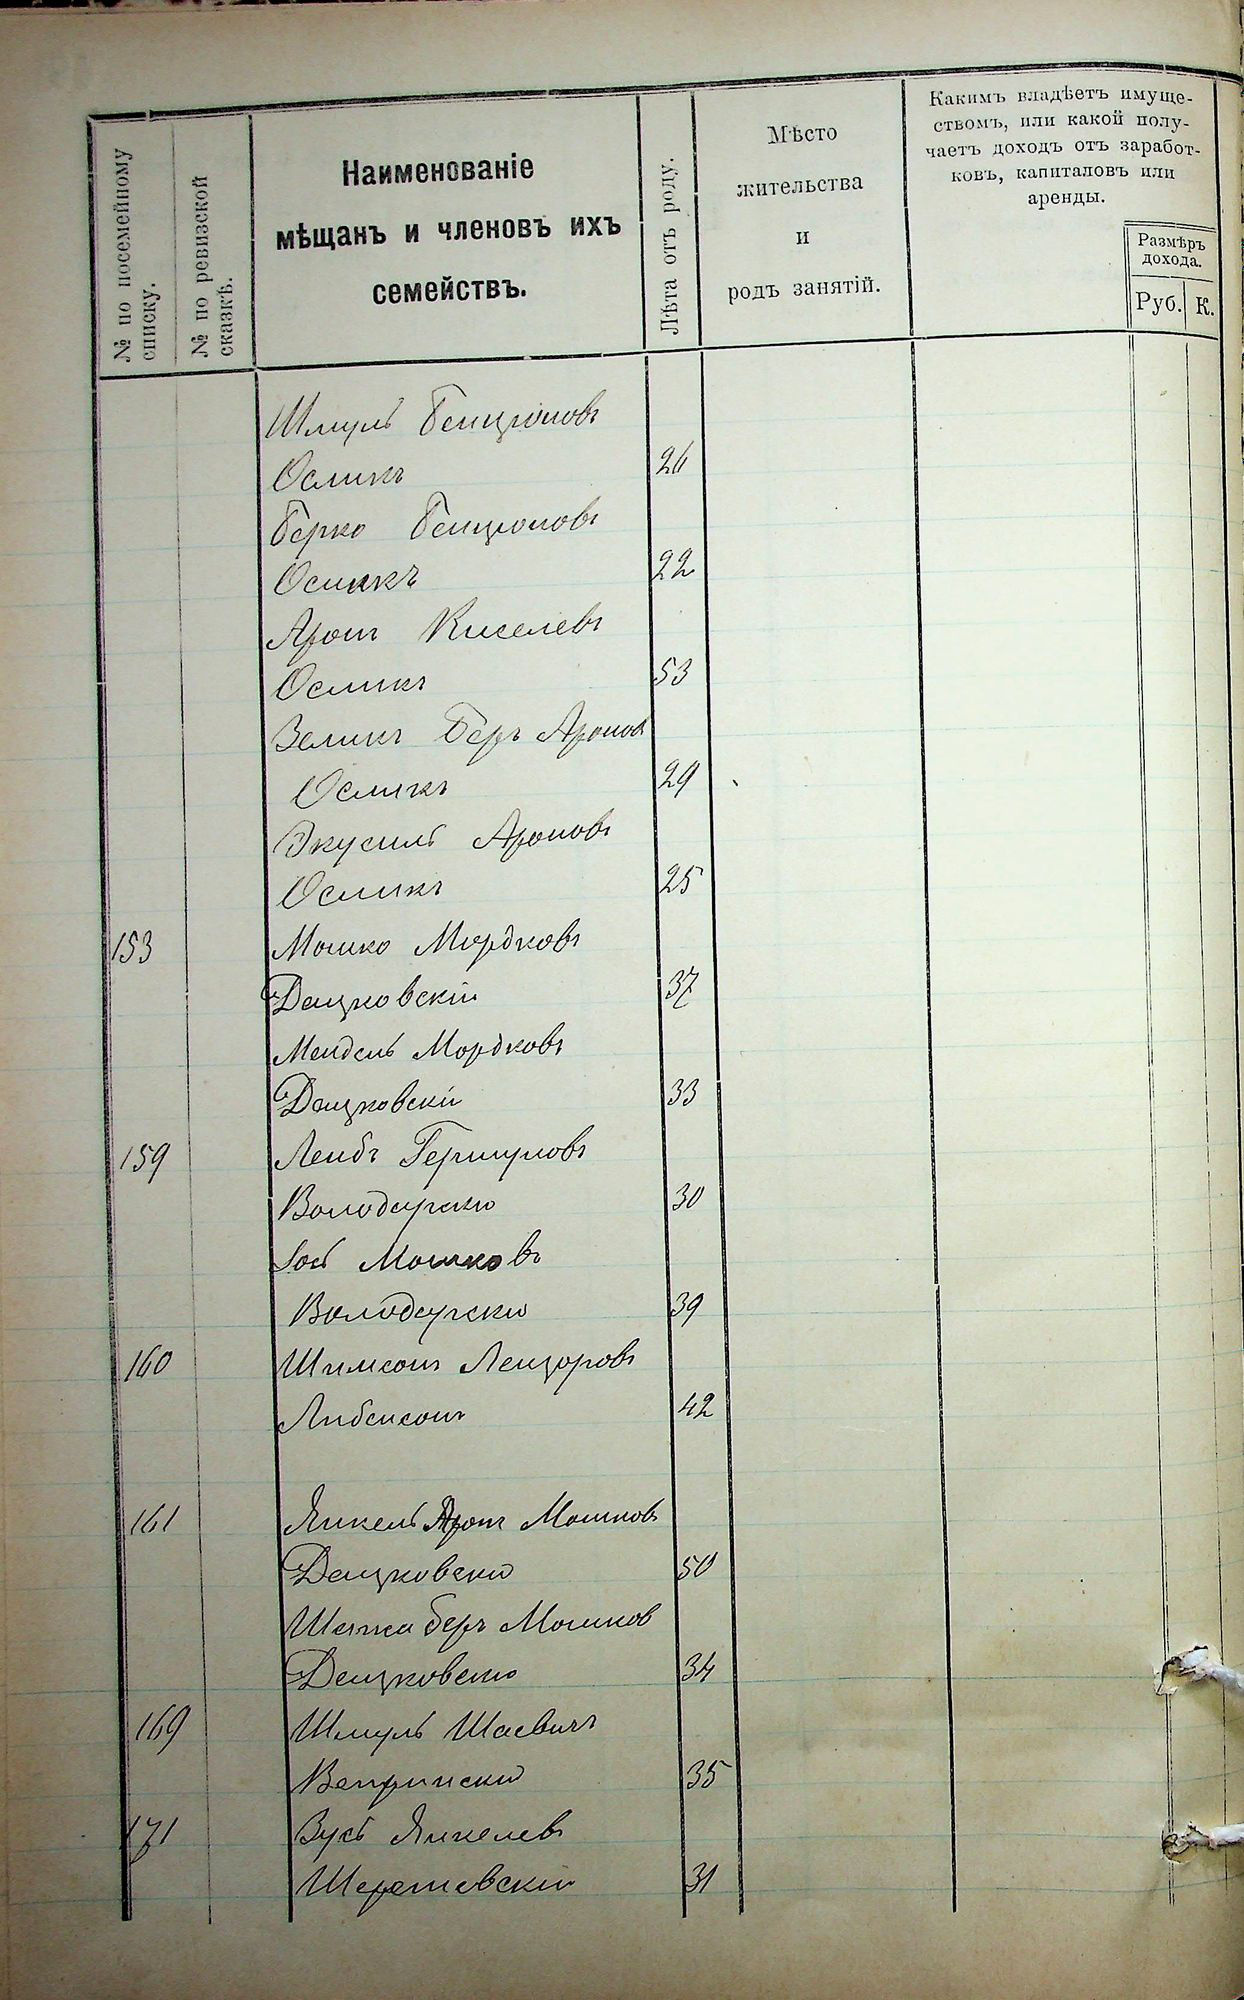 № по посемейному
списку.
№ по ревизской
сказкѣ.
Наименованіе
мѣщанъ и членовъ ихъ
семействъ.
Лѣта отъ роду.
Мѣсто
жительства
и
родъ занятій.
Какимъ владѣетъ имуще-
ствомъ, или какой полу-
чаетъ доходъ отъ заработ-
ковъ, капиталовъ или
аренды.
Размѣръ
дохода.
Руб. К.
Шмуль Бенціоновъ
Осликъ 26
Берко Бенціоновъ
Осликъ 22
Аронъ Киселевъ
Осликъ 53
Зеликъ Беръ Аронов
Осликъ 29
Экусиль Ароновъ
Осликъ 25
153 Мошко Мордковъ
Децковскій 37
Мендель Мордковъ
Децковскій 33
159 Лейбъ Гершуновъ
Володарскій 30
Мошковъ
Володарскій 39
160 Шимсонъ Лейзоровъ
Либенсонъ 42
161 Янкель Аронъ Мошковъ
Децковскій 50
Беръ Мошков
Децковскій 34
169 Шмуль Шаевичъ
Вепринскій 35
171 Зусь Янкелевъ
Шерешевскій 31